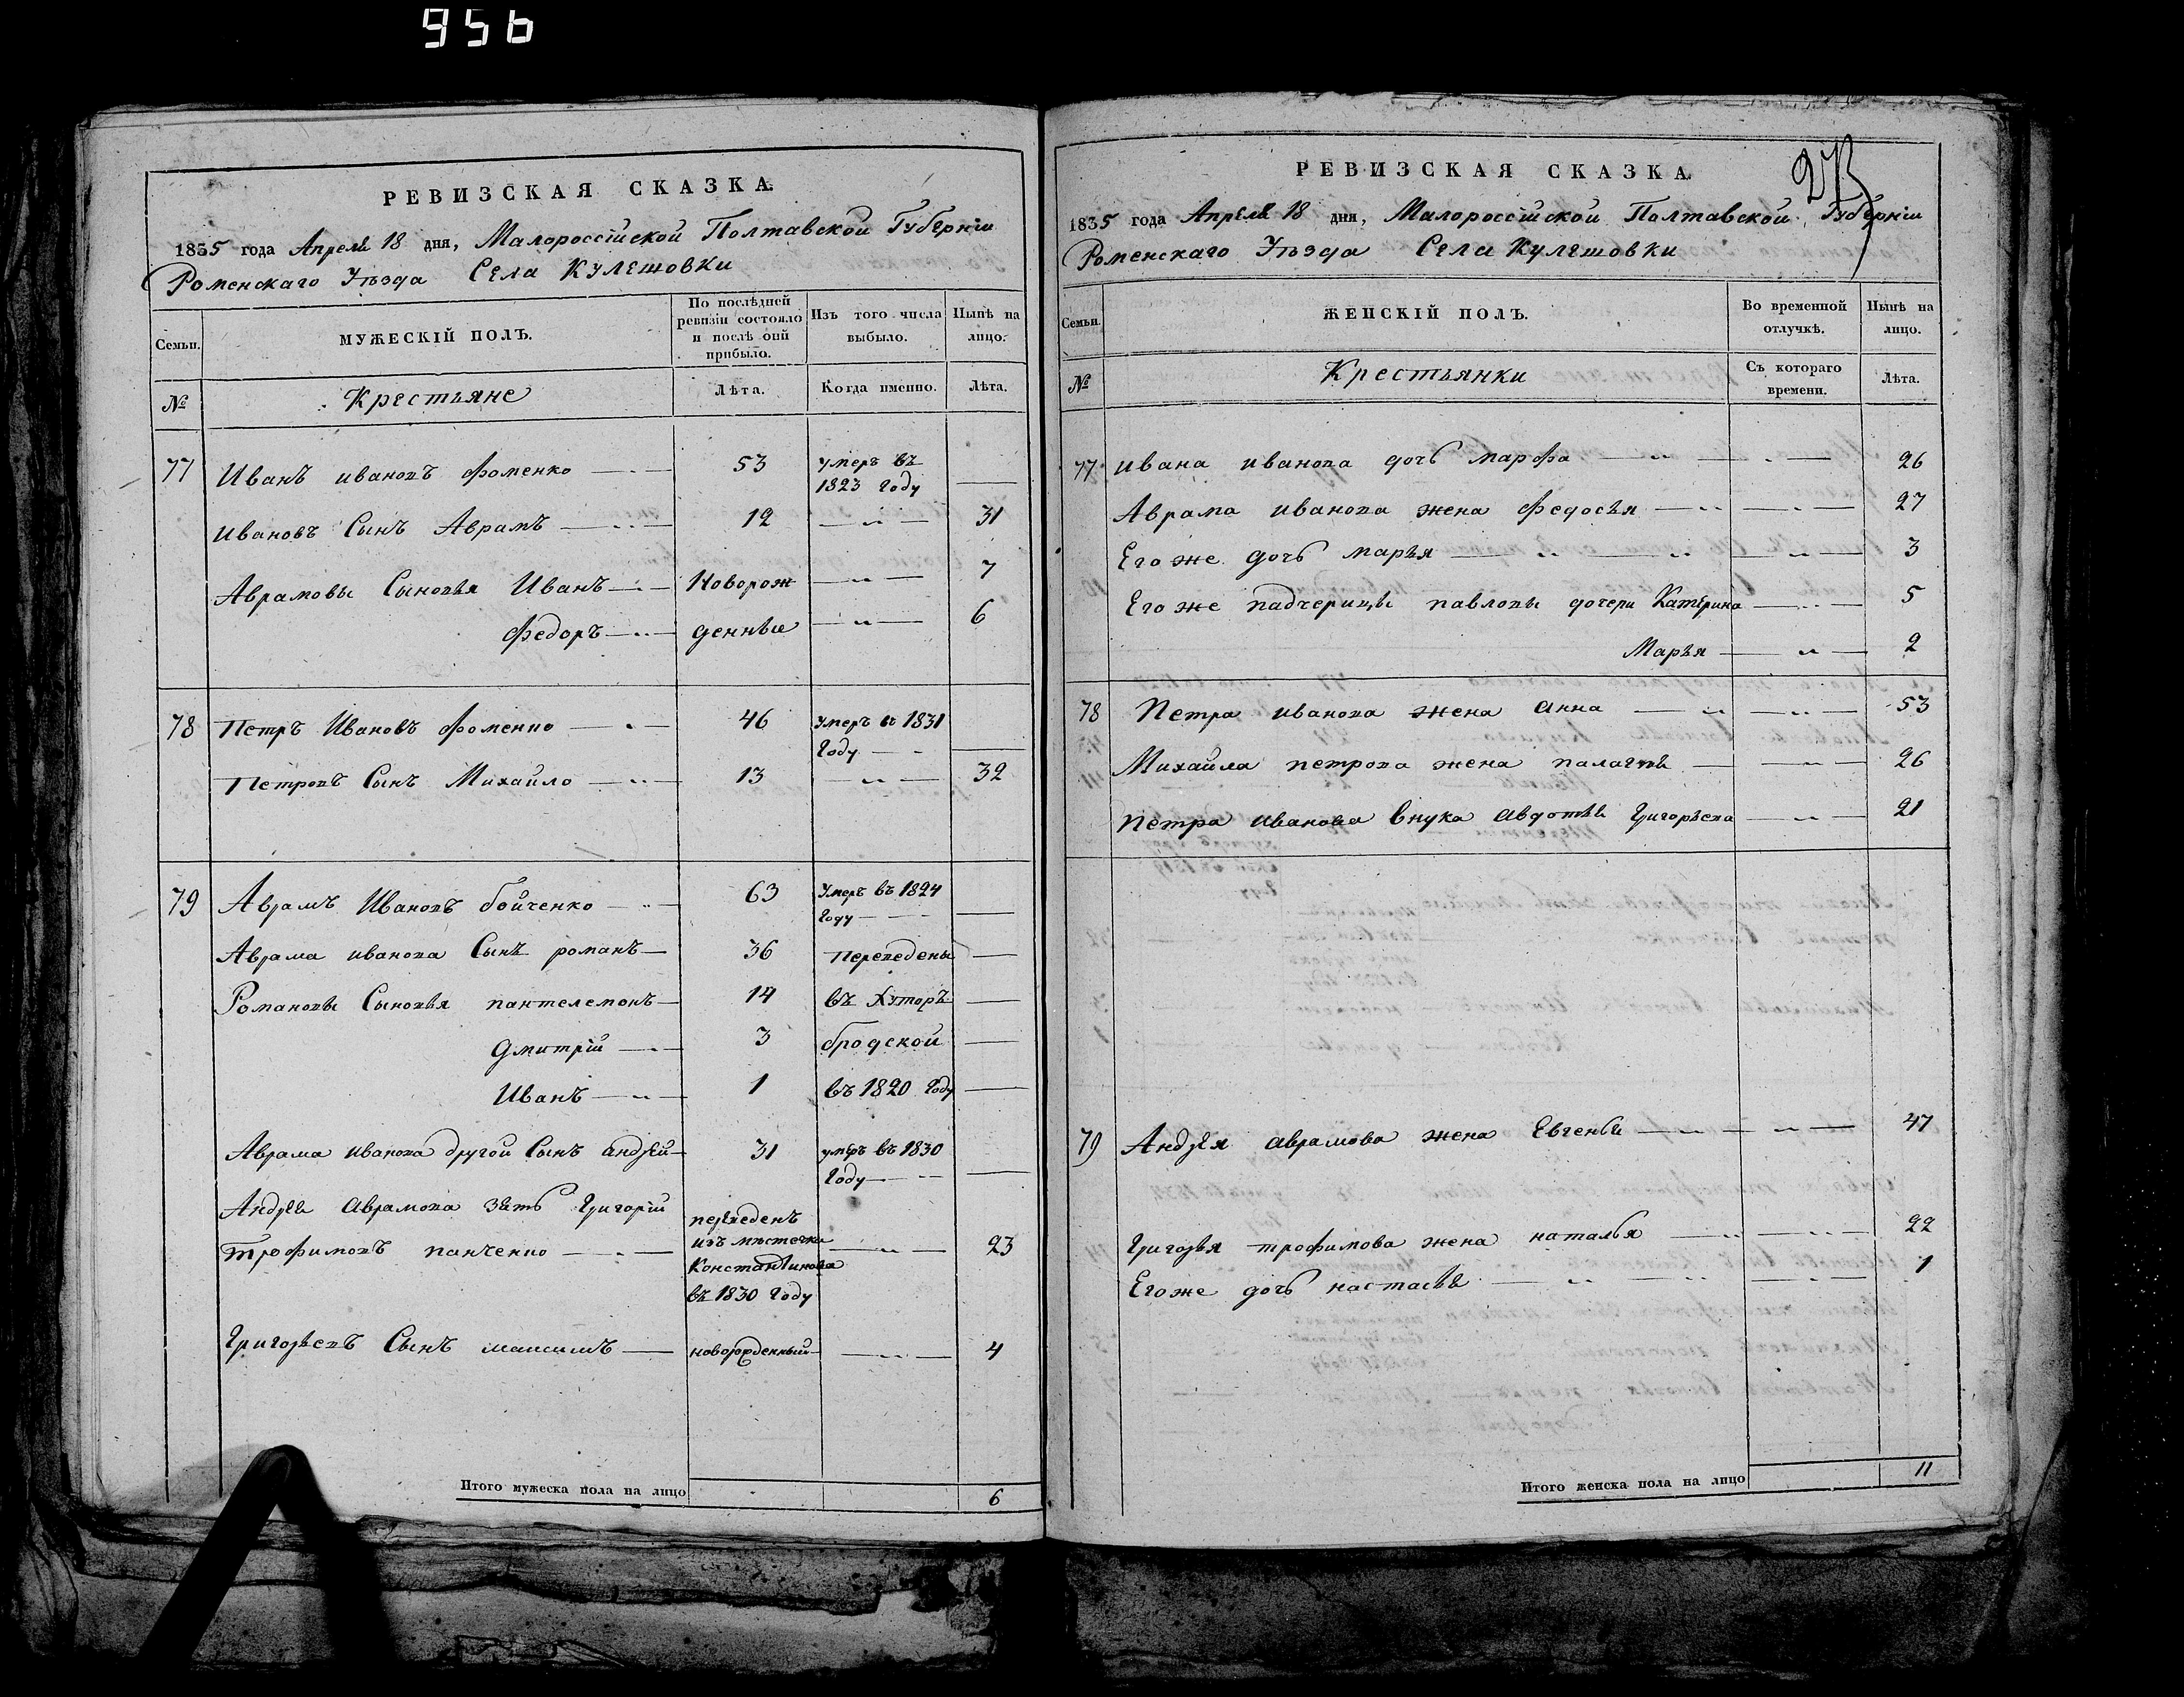 956
РЕВИЗСКАЯ СКАЗКА
1835 года Апреля 18 дня, Малороссійской Полтавской Губерніи
Роменскаго Уѣзда Села Кулешовки
Семьи.
МУЖЕСКІЙ ПОЛЪ.
По послѣдней ревизіи состояло и послѣ оной прибыло.
Изъ того числа выбыло.
Нынѣ на лицо.
№
Крестьяне
Лѣта.
Когда именно.
Лѣта.
77 Иванъ ивановъ фоменко 53 умеръ въ 1823 году
ивановъ Сынъ Аврамъ 12 31
Аврамовы Сыновья Иванъ Новорож 7
федоръ денные 6
78 Петръ Ивановъ фоменко 46 умеръ въ 1831 году
Петровъ Сынъ Михайло 13 32
79 Аврамъ Ивановъ бойченко 63 умеръ въ 1824 году
Аврама иванова Сынъ романъ 36 Переведены
Романовы Сыновья пантелемонъ 14 въ Хуторъ
дмитрій 3 бродской
Иванъ 1 въ 1820 году
Аврама иванова другой Сынъ андрей 31 умеръ въ 1830 году
Андрея аврамова зять Григорій
трофимовъ панченко переведенъ изъ местечка Константинова въ 1830 году 23
Григорьевъ Сынъ максимъ новорожденный 4
Итого мужеска пола на лицо 6
РЕВИЗСКАЯ СКАЗКА
1835 года Апреля 18 дня, Малороссійской Полтавской Губерніи
Роменскаго Уѣзда Села Кулешовки
Семьи.
ЖЕНСКІЙ ПОЛЪ.
Во временной отлучкѣ.
Нынѣ на лицо.
№
Крестьянки
Съ котораго времени.
Лѣта.
77 ивана иванова дочь марфа 26
Аврама иванова жена федосья 27
Его же дочь марья 3
Его же падчерицы павловы дочери Катерина 5
Марья 2
78 Петра иванова жена анна 53
Михайла петрова жена палагея 26
Петра иванова внука авдотья Григорьева 21
79 Андрея аврамова жена Евгенья 47
Григорья трофимова жена наталья 22
Его же дочь настасья 1
Итого женска пола на лицо 11